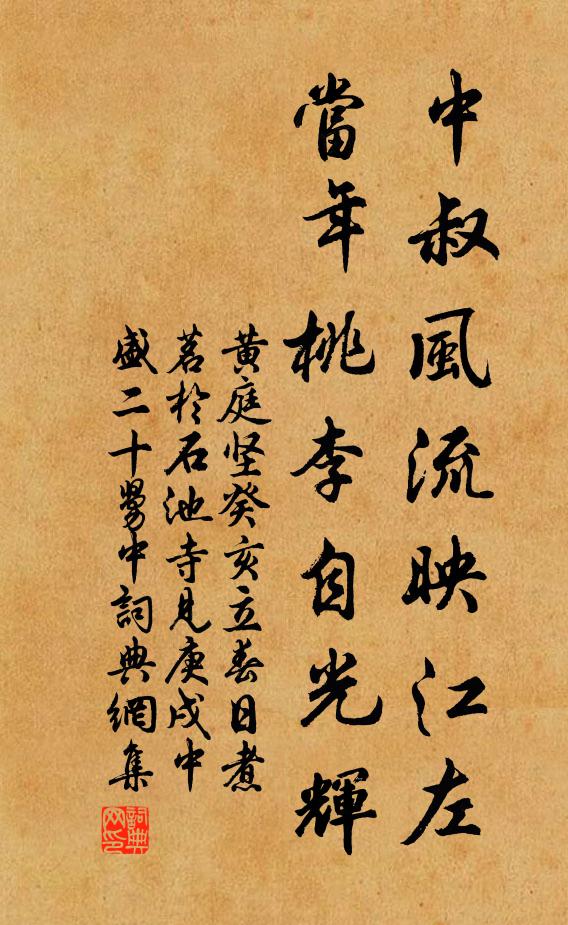 中叔風流映江左
當年桃李自光輝
黄庭坚癸亥立春日煮
茗於石池寺見庚戌中
盛二十舅中詞典網集
詞典网印